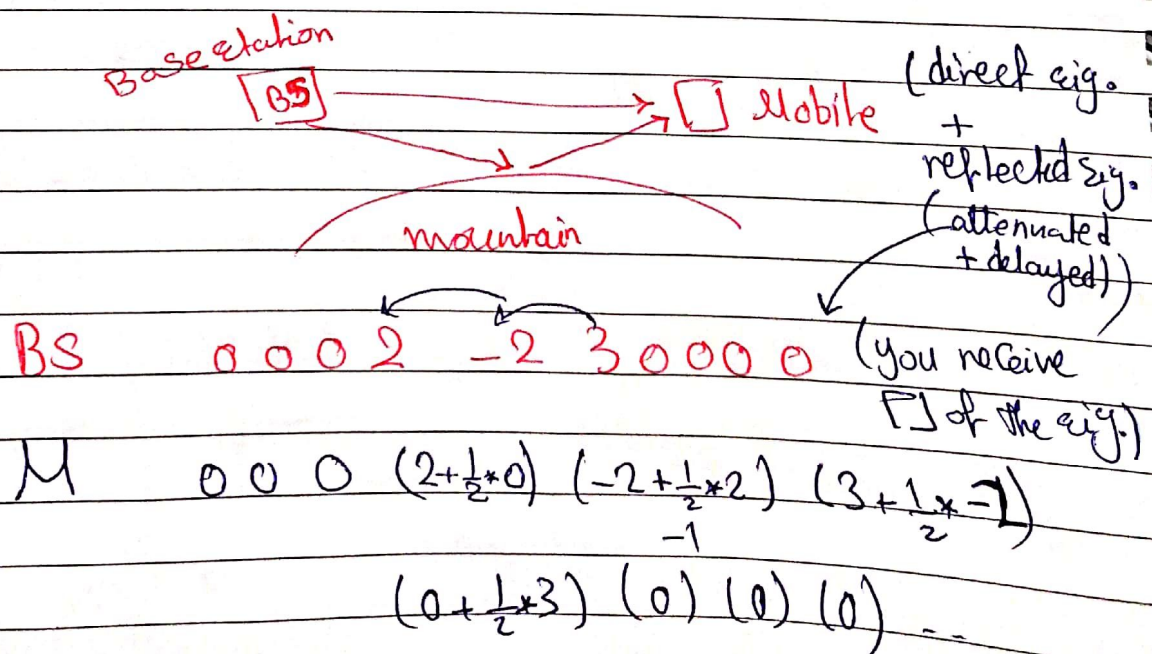 Base station
[BS] Mobile
(direct sig.
+
reflected sig.
(attenuated
+ delayed))
mountain
BS 0 0 0 2 -2 3 0 0 0 0 (you receive
[] of the sig.)
M 0 0 0 (2+1/2*0) (-2+1/2*2) (3+1/2*-1)
-1
(0+1/2*3) (0) (0) (0) --